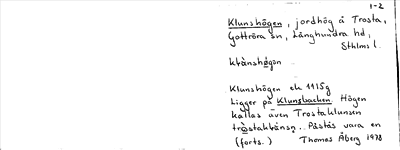 1-2
Klunshögen, jordhög å Trosta,
Gottröra sn, Långhundra hd,
Sthlms l.
Klunshögen ek 1115g
Ligger på Klunsbacken. Högen
kallas även Trostaklunsen
Påstås vara en
(forts.) Thomas Åberg 1978